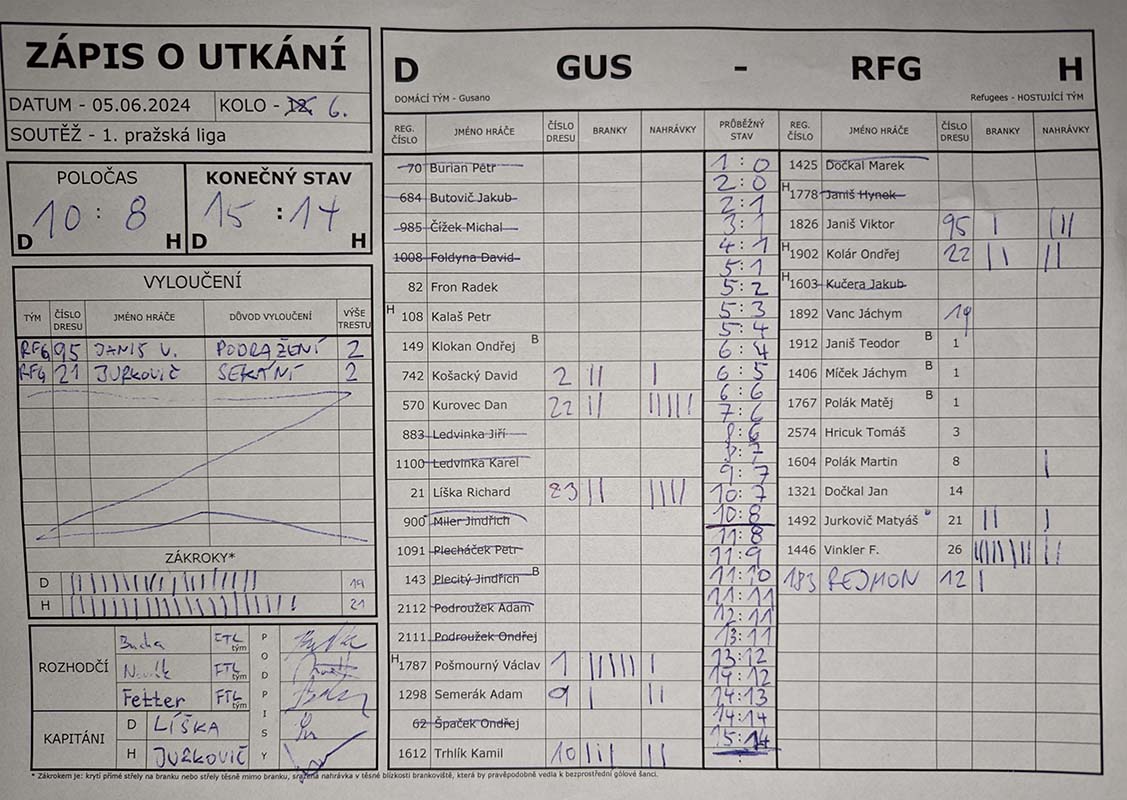 ZÁPIS O UTKÁNÍ
DATUM - 05.06.2024 KOLO - 6.
SOUTĚŽ - 1. pražská liga
POLOČAS
10 : 8
D H
KONEČNÝ STAV
15 : 14
D H
VYLOUČENÍ
TÝM ČÍSLO DRESU JMÉNO HRÁČE DŮVOD VYLOUČENÍ VÝŠE TRESTU
RFG 95 JANIŠ V. PODRAŽENÍ 2
RFG 21 JURKOVIČ SEKÁNÍ 2
ZÁKROKY*
D 19
H 21
ROZHODČÍ
Bucha FTL tým
Novák FTL tým
Fetter FTL tým
KAPITÁNI
D LÍŠKA
H JURKOVIČ
PODPISY
D GUS - RFG H
DOMÁCÍ TÝM - Gusano Refugees - HOSTUJÍCÍ TÝM
REG. ČÍSLO JMÉNO HRÁČE ČÍSLO DRESU BRANKY NAHRÁVKY PRŮBĚŽNÝ STAV REG. ČÍSLO JMÉNO HRÁČE ČÍSLO DRESU BRANKY NAHRÁVKY
70 Burian Petr
684 Butovič Jakub
985 Čížek Michal
1008 Foldyna David
82 Fron Radek
H 108 Kalaš Petr
149 Klokan Ondřej B
742 Košacký David 2 || |
570 Kurovec Dan 22 || |||||
883 Ledvinka Jiří
1100 Ledvinka Karel
21 Líška Richard 23 || ||||
900 Miler Jindřich
1091 Plecháček Petr
143 Plecitý Jindřich B
2112 Podroužek Adam
2111 Podroužek Ondřej
H 1787 Pošmourný Václav 1 ||||| |
1298 Semerák Adam 9 | ||
62 Špaček Ondřej
1612 Trhlík Kamil 10 ||| ||
1:0
2:0
2:1
3:1
4:1
5:1
5:2
5:3
5:4
6:4
6:5
6:6
7:6
8:6
8:7
9:7
10:7
10:8
11:8
11:9
11:10
11:11
12:11
13:11
13:12
14:12
14:13
14:14
15:14
1425 Dočkal Marek
H 1778 Janiš Hynek
1826 Janiš Viktor 95 | |||
H 1902 Kolár Ondřej 22 || ||
H 1603 Kučera Jakub
1892 Vanc Jáchym 19
1912 Janiš Teodor B 1
1406 Míček Jáchym B 1
1767 Polák Matěj B 1
2574 Hricuk Tomáš 3
1604 Polák Martin 8 |
1321 Dočkal Jan 14
1492 Jurkovič Matyáš 21 || |
1446 Vinkler F. 26 |||||||| ||
183 REJMON 12 |
* Zákrokem je: krytí přímé střely na branku nebo střely těsně mimo branku, sražená nahrávka v těsné blízkosti brankoviště, která by pravěpodobně vedla k bezprostřední gólové šanci.